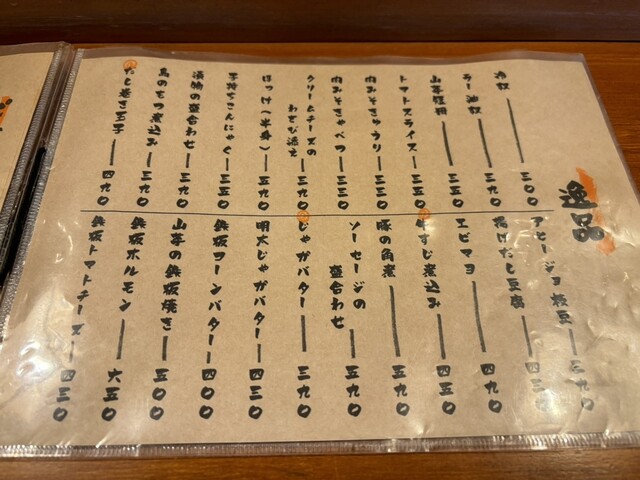 逸品
冷奴 三〇〇
ラー油奴 三九〇
山芋短冊 三五〇
トマトスライス 三五〇
肉みそきゅうり 三三〇
肉みそきゃべつ 三三〇
クリームチーズの
わさび添え 三九〇
ほっけ(半身) 五九〇
子持ちこんにゃく 三五〇
漬物の盛合わせ 三九〇
鳥のもつ煮込み 三九〇
だし巻き玉子 四九〇
アヒージョ枝豆 三九〇
揚げだし豆腐 四三〇
エビマヨ 四九〇
牛すじ煮込み 四五〇
豚の角煮 五九〇
ソーセージの
盛合わせ 五九〇
じゃがバター 三九〇
明太じゃがバター 四三〇
鉄板コーンバター 四〇〇
山芋の鉄板焼き 五〇〇
鉄板ホルモン 六五〇
鉄板トマトチーズ 四三〇